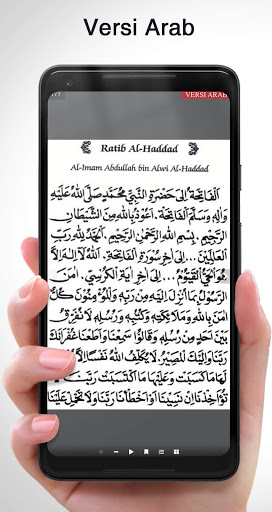 Versi Arab
VERSI ARAB
Ratib Al-Haddad
Al-Imam Abdullah bin Alwi Al-Haddad
اَلْفَاتِحَةُ اِلَى حَضْرَةِ النَّبِيِّ مُحَمَّدٍ صَلَّى اللهُ عَلَيْهِ
وَاٰلِهِ وَسَلَّمَ اَلْفَاتِحَةَ. اَعُوْذُ بِاللهِ مِنَ الشَّيْطَانِ
الرَّجِيْمِ. بِسْمِ اللهِ الرَّحْمٰنِ الرَّحِيْمِ. اَلْحَمْدُ لِلّٰهِ رَبِّ
الْعَالَمِيْنَ... اِلَى اٰخِرِ سُوْرَةِ الْفَاتِحَةِ. اَللهُ لَآ اِلٰهَ اِلَّا
هُوَ الْحَيُّ الْقَيُّوْمُ... اِلَى اٰخِرِ اٰيَةِ الْكُرْسِيِّ. اٰمَنَ
الرَّسُوْلُ بِمَآ اُنْزِلَ اِلَيْهِ مِنْ رَبِّهِ وَالْمُؤْمِنُوْنَ كُلٌّ
اٰمَنَ بِاللهِ وَمَلَآئِكَتِهِ وَكُتُبِهِ وَرُسُلِهِ لَا نُفَرِّقُ
بَيْنَ اَحَدٍ مِنْ رُسُلِهِ وَقَالُوْا سَمِعْنَا وَاَطَعْنَا غُفْرَانَكَ
رَبَّنَا وَاِلَيْكَ الْمَصِيْرُ. لَا يُكَلِّفُ اللهُ نَفْسًا اِلَّا وُسْعَهَا
لَهَا مَا كَسَبَتْ وَعَلَيْهَا مَا اكْتَسَبَتْ رَبَّنَا لَا
تُؤَاخِذْنَا اِنْ نَسِيْنَا اَوْ اَخْطَأْنَا رَبَّنَا وَلَا تَحْمِلْ عَلَيْنَا